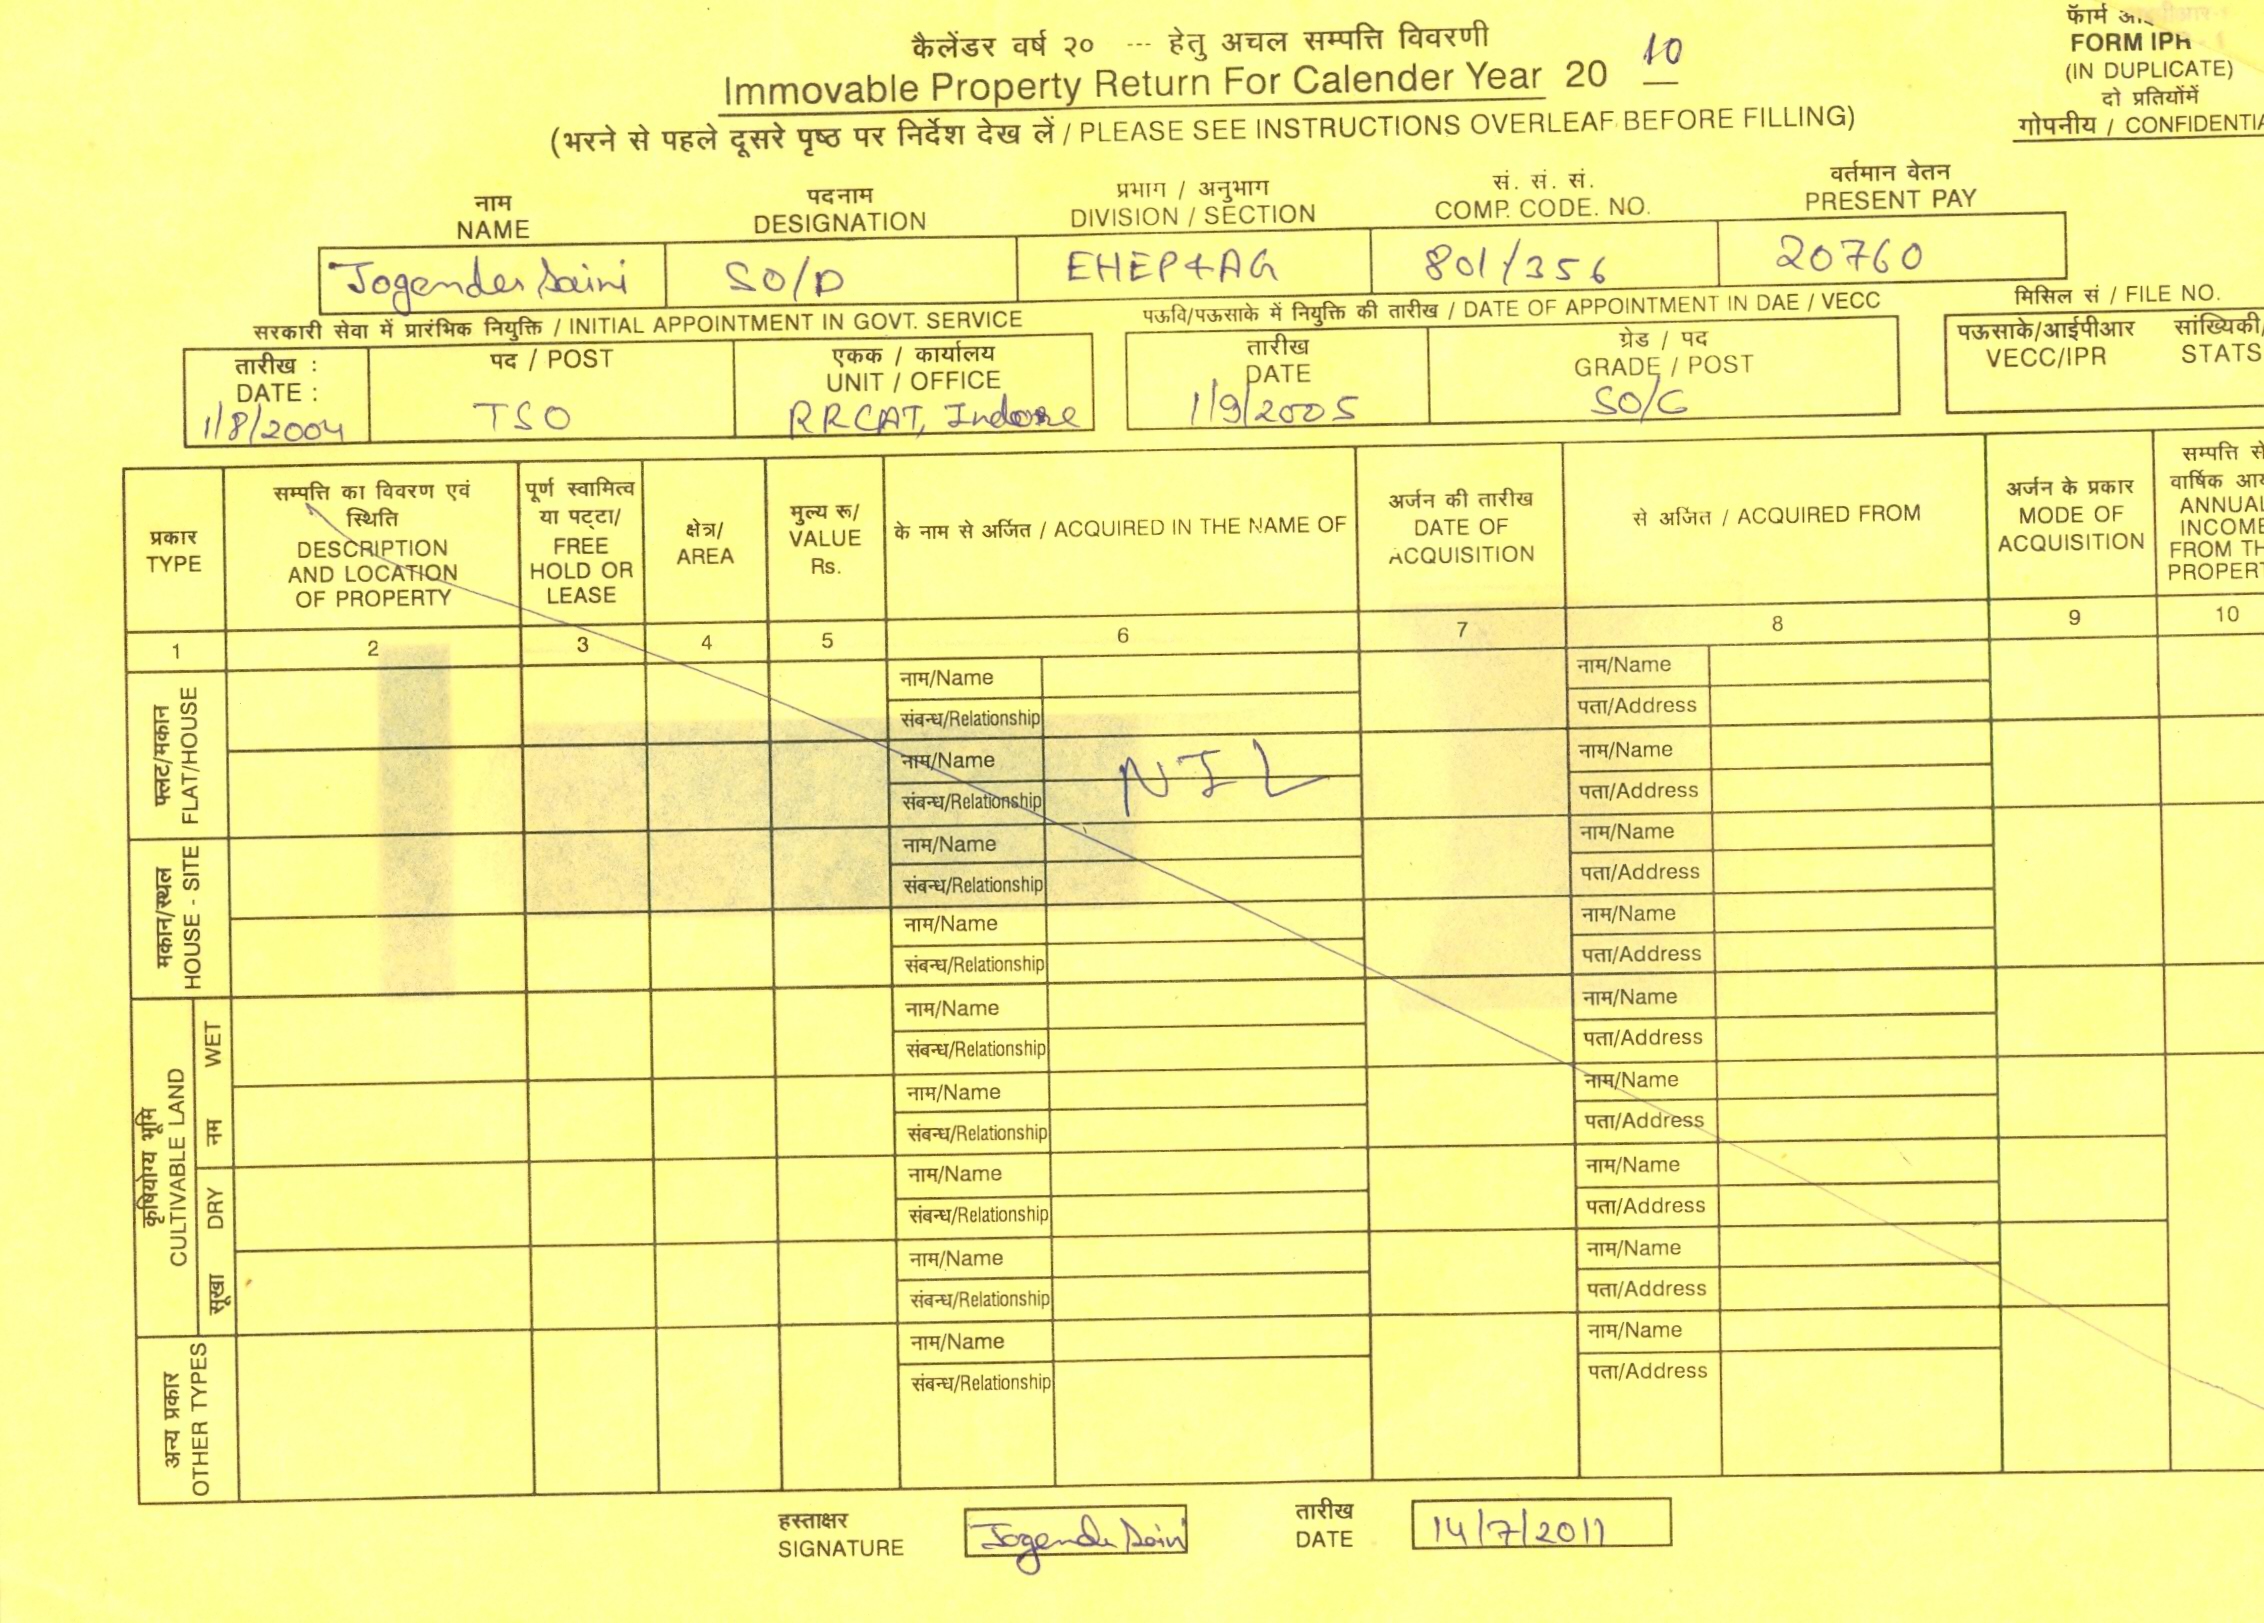 फॅार्म
कैलेंडर वर्ष २० --- हेतु अचल सम्पत्ति विवरणी
FORM IPR
Immovable Property Return For Calender Year 20 10
(IN DUPLICATE)
दो प्रतियोंमें
(भरने से पहले दूसरे पृष्ठ पर निर्देश देख लें / PLEASE SEE INSTRUCTIONS OVERLEAF BEFORE FILLING)
गोपनीय / CONFIDENTIA
नाम पदनाम प्रभाग / अनुभाग सं. सं. सं. वर्तमान वेतन
NAME DESIGNATION DIVISION / SECTION COMP. CODE. NO. PRESENT PAY
Jogender Saini SO/D EHEP&AG 801/356 20760
सरकारी सेवा में प्रारंभिक नियुक्ति / INITIAL APPOINTMENT IN GOVT. SERVICE पऊवि/पऊसाके में नियुक्ति की तारीख / DATE OF APPOINTMENT IN DAE / VECC मिसिल सं / FILE NO.
तारीख : पद / POST एकक / कार्यालय तारीख ग्रेड / पद पऊसाके/आईपीआर सांख्यिकी/
DATE : UNIT / OFFICE DATE GRADE / POST VECC/IPR STATS
1/8/2004 TSO RRCAT, Indore 1/9/2005 SO/C
प्रकार
TYPE
सम्पत्ति का विवरण एवं
स्थिति
DESCRIPTION
AND LOCATION
OF PROPERTY
पूर्ण स्वामित्व
या पट्टा/
FREE
HOLD OR
LEASE
क्षेत्र/
AREA
मुल्य रू/
VALUE
Rs.
के नाम से अर्जित / ACQUIRED IN THE NAME OF
अर्जन की तारीख
DATE OF
ACQUISITION
से अर्जित / ACQUIRED FROM
अर्जन के प्रकार
MODE OF
ACQUISITION
सम्पत्ति से
वार्षिक आय
ANNUAL
INCOME
FROM TH
PROPERT
1 2 3 4 5 6 7 8 9 10
फ्लट/मकान
FLAT/HOUSE
नाम/Name नाम/Name
संबन्ध/Relationship पता/Address
नाम/Name NIL नाम/Name
संबन्ध/Relationship पता/Address
मकान/स्थल
HOUSE - SITE
नाम/Name नाम/Name
संबन्ध/Relationship पता/Address
नाम/Name नाम/Name
संबन्ध/Relationship पता/Address
कृषियोग्य भूमि
CULTIVABLE LAND
नम WET
नाम/Name नाम/Name
संबन्ध/Relationship पता/Address
नाम/Name नाम/Name
संबन्ध/Relationship पता/Address
सूखा DRY
नाम/Name नाम/Name
संबन्ध/Relationship पता/Address
नाम/Name नाम/Name
संबन्ध/Relationship पता/Address
अन्य प्रकार
OTHER TYPES
नाम/Name नाम/Name
संबन्ध/Relationship पता/Address
हस्ताक्षर तारीख
SIGNATURE Jogender Saini DATE 14/7/2011